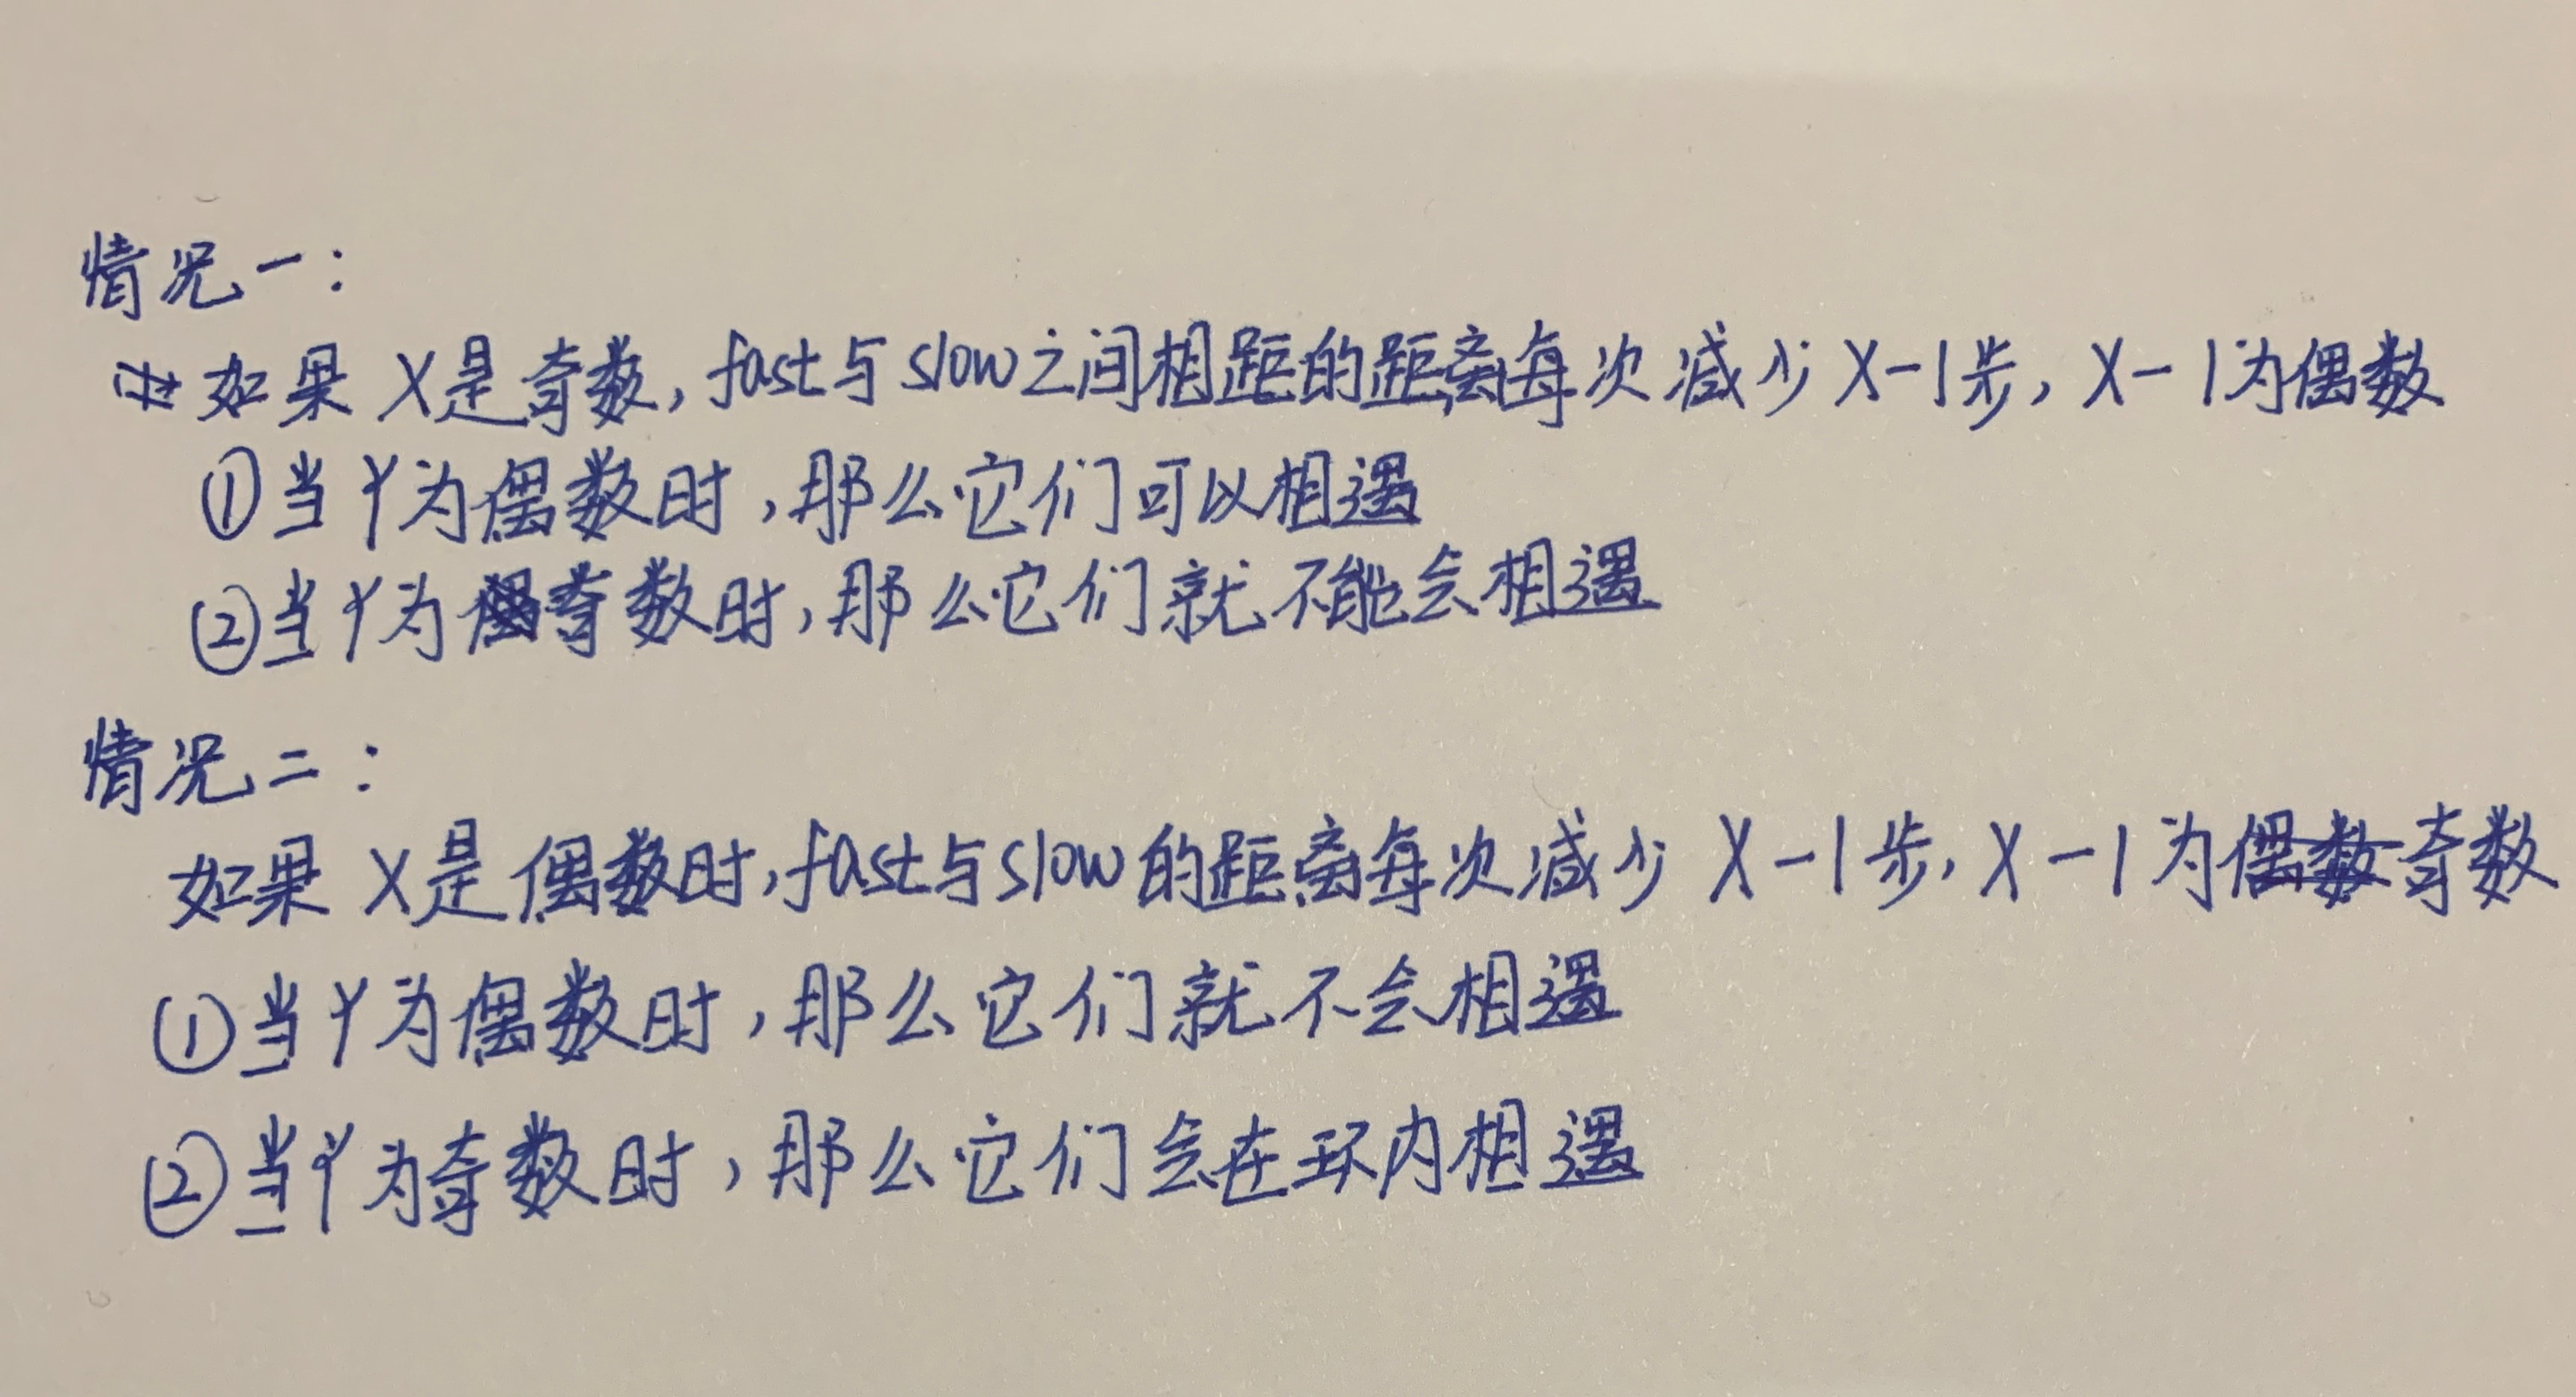 情况一：
如果X是奇数，fast与slow之间相距的距离每次减少X-1步，X-1为偶数
①当Y为偶数时，那么它们可以相遇
②当Y为奇数时，那么它们就不能会相遇
情况二：
如果X是偶数时，fast与slow的距离每次减少X-1步，X-1为偶数奇数
①当Y为偶数时，那么它们就不会相遇
②当Y为奇数时，那么它们会在环内相遇